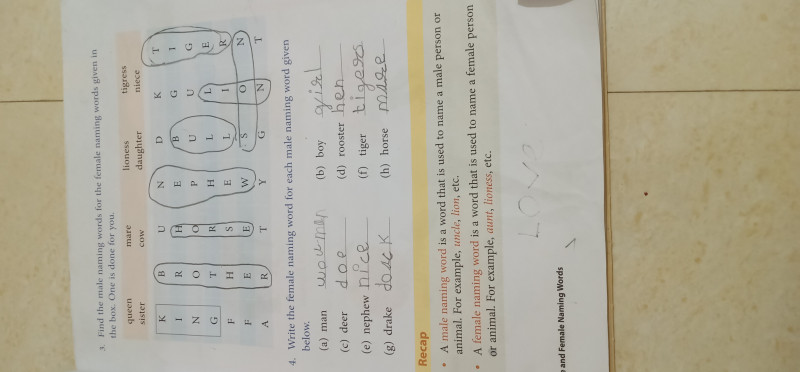 3. Find the male naming words for the female naming words given in
the box. One is done for you.
queen mare lioness tigress
sister cow daughter niece
K B U N D K T
I R H E B G I
N O O P U U G
G T R H L L E
F H S E L I R
F E E W S O N
A R T Y G N T
4. Write the female naming word for each male naming word given
below.
(a) man (b) boy girl
(c) deer doe (d) rooster hen
(e) nephew nice (f) tiger tigers
(g) drake (h) horse maare
Recap
• A male naming word is a word that is used to name a male person or
animal. For example, uncle, lion, etc.
• A female naming word is a word that is used to name a female person
or animal. For example, aunt, lioness, etc.
and Female Naming Words